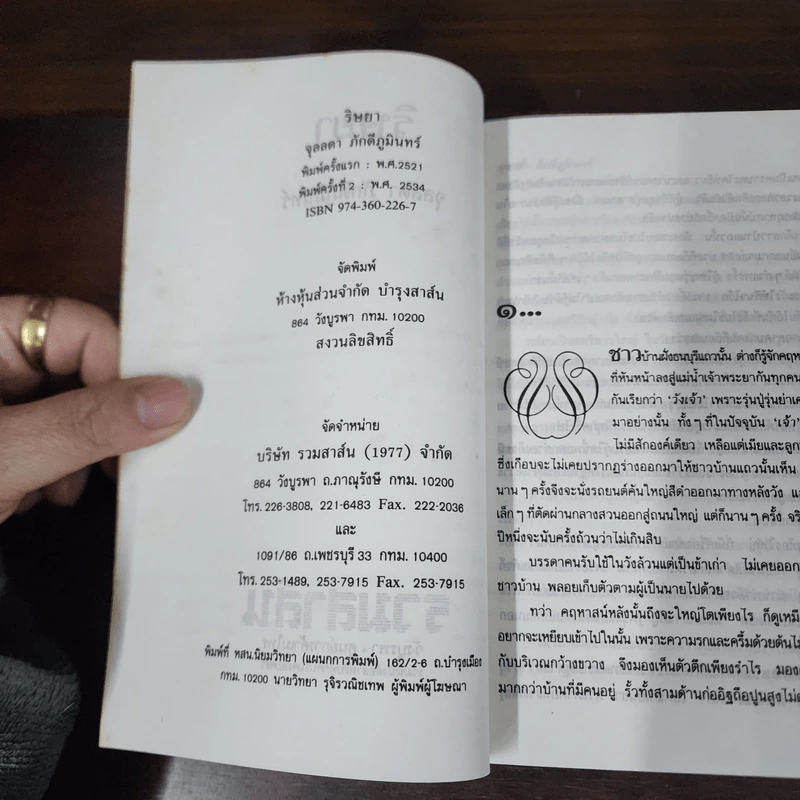 ริษยา
จุลลดา ภักดีภูมินทร์
พิมพ์ครั้งแรก : พ.ศ.2521
พิมพ์ครั้งที่ 2 : พ.ศ. 2534
ISBN 974-360-226-7
จัดพิมพ์
ห้างหุ้นส่วนจำกัด บำรุงสาส์น
864 วังบูรพา กทม. 10200
สงวนลิขสิทธิ์
จัดจำหน่าย
บริษัท รวมสาส์น (1977) จำกัด
864 วังบูรพา ถ.ภาณุรังษี กทม. 10200
โทร. 226-3808, 221-6483 Fax. 222-2036
และ
1091/86 ถ.เพชรบุรี 33 กทม. 10400
โทร. 253-1489, 253-7915 Fax. 253-7915
พิมพ์ที่ หสน.นิยมวิทยา (แผนกการพิมพ์) 162/2-6 ถ.บำรุงเมือง
กทม. 10200 นายวิทยา รุจิรวณิชเทพ ผู้พิมพ์ผู้โฆษณา
๑...
ชาวบ้านฝั่งธนบุรีแถวนั้น ต่างก็รู้จักคฤห
ที่หันหน้าลงสู่แม่น้ำเจ้าพระยากันทุกคน
กันเรียกว่า 'วังเจ้า' เพราะรุ่นปู่รุ่นย่าเค
มาอย่างนั้น ทั้งๆ ที่ในปัจจุบัน 'เจ้า'
ไม่มีสักองค์เดียว เหลือแต่เมียและลูก
ซึ่งเกือบจะไม่เคยปรากฏร่างออกมาให้ชาวบ้านแถวนั้นเห็น
นานๆ ครั้งจึงจะนั่งรถยนต์คันใหญ่สีดำออกมาทางหลังวัง แ
เล็กๆ ที่ตัดผ่านกลางสวนออกสู่ถนนใหญ่ แต่ก็นานๆ ครั้ง จริ
ปีหนึ่งจะนับครั้งถ้วนว่าไม่เกินสิบ
บรรดาคนรับใช้ในวังล้วนแต่เป็นข้าเก่า ไม่เคยออก
ชาวบ้าน พลอยเก็บตัวตามผู้เป็นนายไปด้วย
ทว่า คฤหาสน์หลังนั้นถึงจะใหญ่โตเพียงไร ก็ดูเหมื
อยากจะเหยียบเข้าไปในนั้น เพราะความรกและครึ้มด้วยต้นไม
กับบริเวณกว้างขวาง จึงมองเห็นตัวตึกเพียงรำไร มอง
มากกว่าบ้านที่มีคนอยู่ รั้วทั้งสามด้านก่ออิฐถือปูนสูงไม่